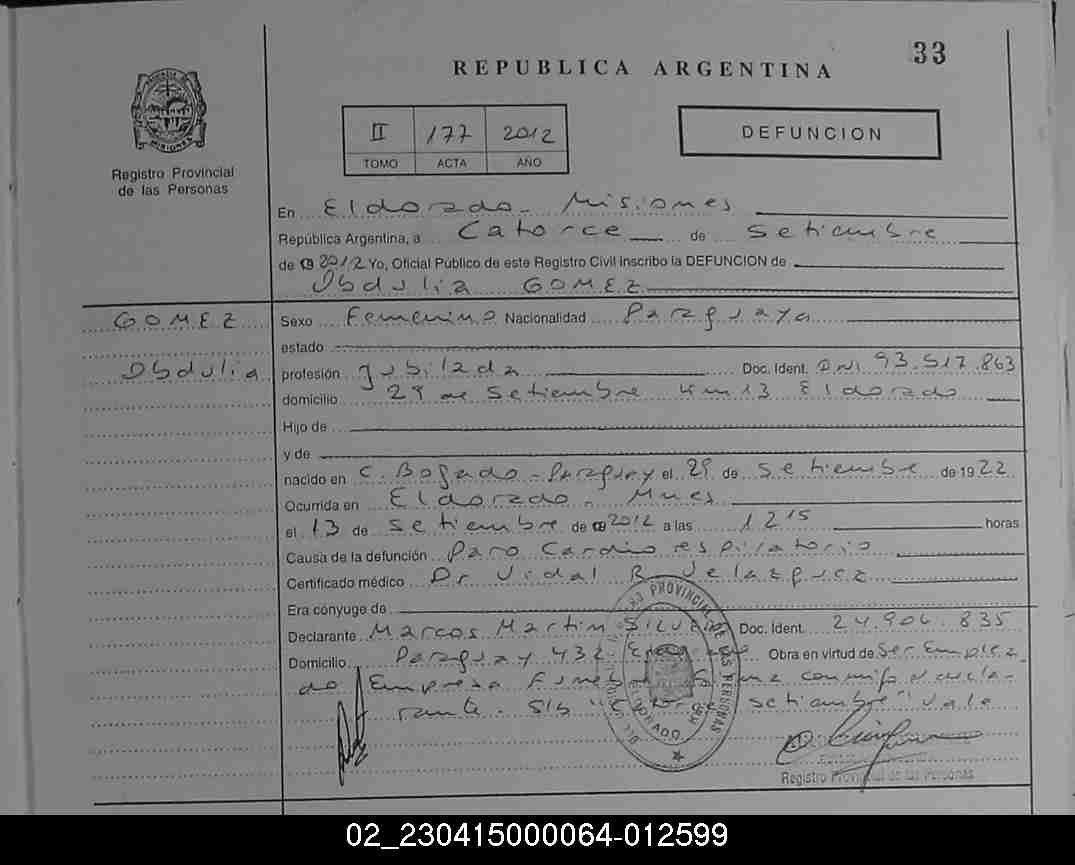 33
REPUBLICA ARGENTINA
II 177 2012
TOMO ACTA AÑO
DEFUNCION
Registro Provincial
de las Personas
En Eldorado - Misiones
República Argentina, a Catorce de Setiembre
de 2012 Yo, Oficial Público de este Registro Civil inscribo la DEFUNCION de
Obdulia GOMEZ
GOMEZ
Obdulia
Sexo Femenino Nacionalidad Paraguaya
estado
profesión Jubilada Doc. Ident. DNI 93.517.863
domicilio 29 de Setiembre Km 13 Eldorado
Hijo de
y de
nacido en C. Bogado - Paraguay el 29 de Setiembre de 1922
Ocurrida en Eldorado - Mnes
el 13 de Setiembre de 2012 a las 12 15 horas
Causa de la defunción Paro Cardiorespiratorio
Certificado médico Dr Vidal R Velazquez
Era cónyuge de
Declarante Marcos Martin SILVERO Doc. Ident. 24.906.835
Domicilio Paraguay 432 Obra en virtud de Ser Emplea
do Empresa Funebre conmigo declarante
S/b setiembre" Vale
PROVINCIAL DE LAS PERSONAS
ELDORADO
Registro Provincial de las Personas
02_230415000064-012599